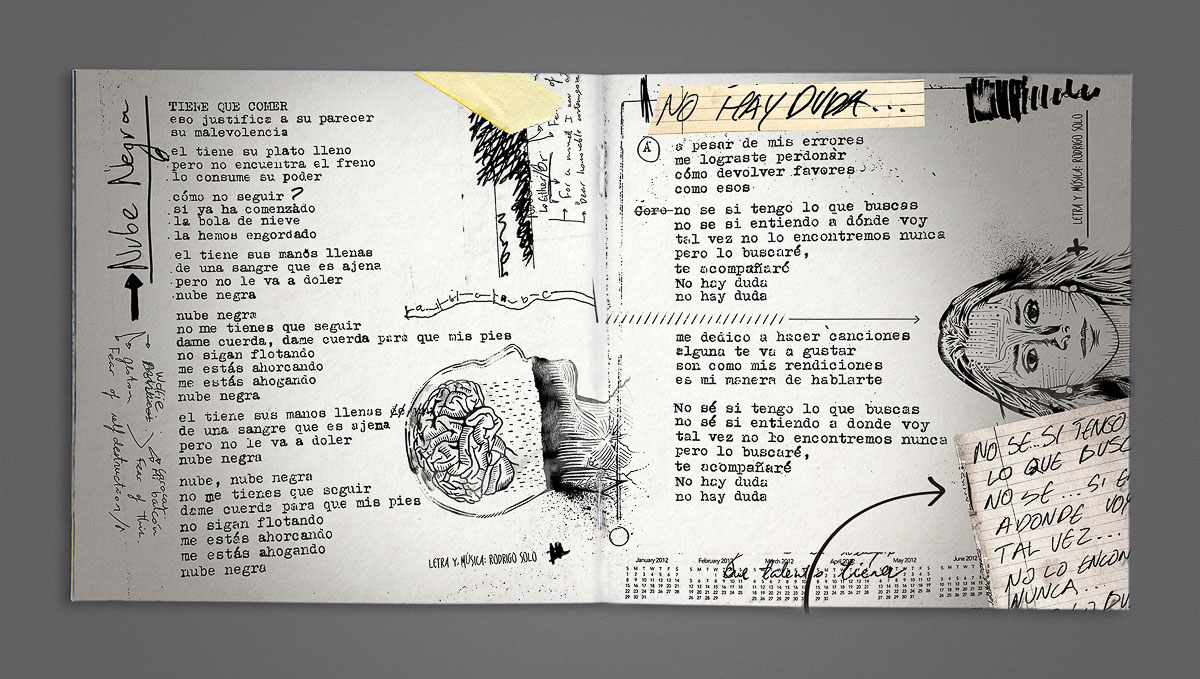 Nube Negra
TIENE QUE COMER
eso justifica a su parecer
su malevolencia
el tiene su plato lleno
pero no encuentra el freno
lo consume su poder
cómo no seguir?
si ya ha comenzado
la bola de nieve
la hemos engordado
el tiene sus manos llenas
de una sangre que es ajena
pero no le va a doler
nube negra
nube negra
no me tienes que seguir
dame cuerda, dame cuerda para que mis pies
no sigan flotando
me estás ahorcando
me estás ahogando
nube negra
el tiene sus manos llenas
de una sangre que es ajena
pero no le va a doler
nube negra
nube, nube negra
no me tienes que seguir
dame cuerda para que mis pies
no sigan flotando
me estás ahorcando
me estás ahogando
nube negra
LETRA Y MÚSICA: RODRIGO SOLO
Fear of self destruction
NO HAY DUDA...
A
a pesar de mis errores
me lograste perdonar
cómo devolver favores
como esos
Coro
no se si tengo lo que buscas
no se si entiendo a dónde voy
tal vez no lo encontremos nunca
pero lo buscaré,
te acompañaré
No hay duda
no hay duda
me dedico a hacer canciones
alguna te va a gustar
son como mis rendiciones
es mi manera de hablarte
No sé si tengo lo que buscas
no sé si entiendo a donde voy
tal vez no lo encontremos nunca
pero lo buscaré,
te acompañaré
No hay duda
no hay duda
LETRA Y MÚSICA: RODRIGO SOLO
NO SE..SI TENGO
LO QUE BUSC
NO SE... SI E
ADONDE VOY
TAL VEZ...
NO LO ENCON
NUNCA...
January 2012
February 2012
March 2012
April 2012
May 2012
June 2012